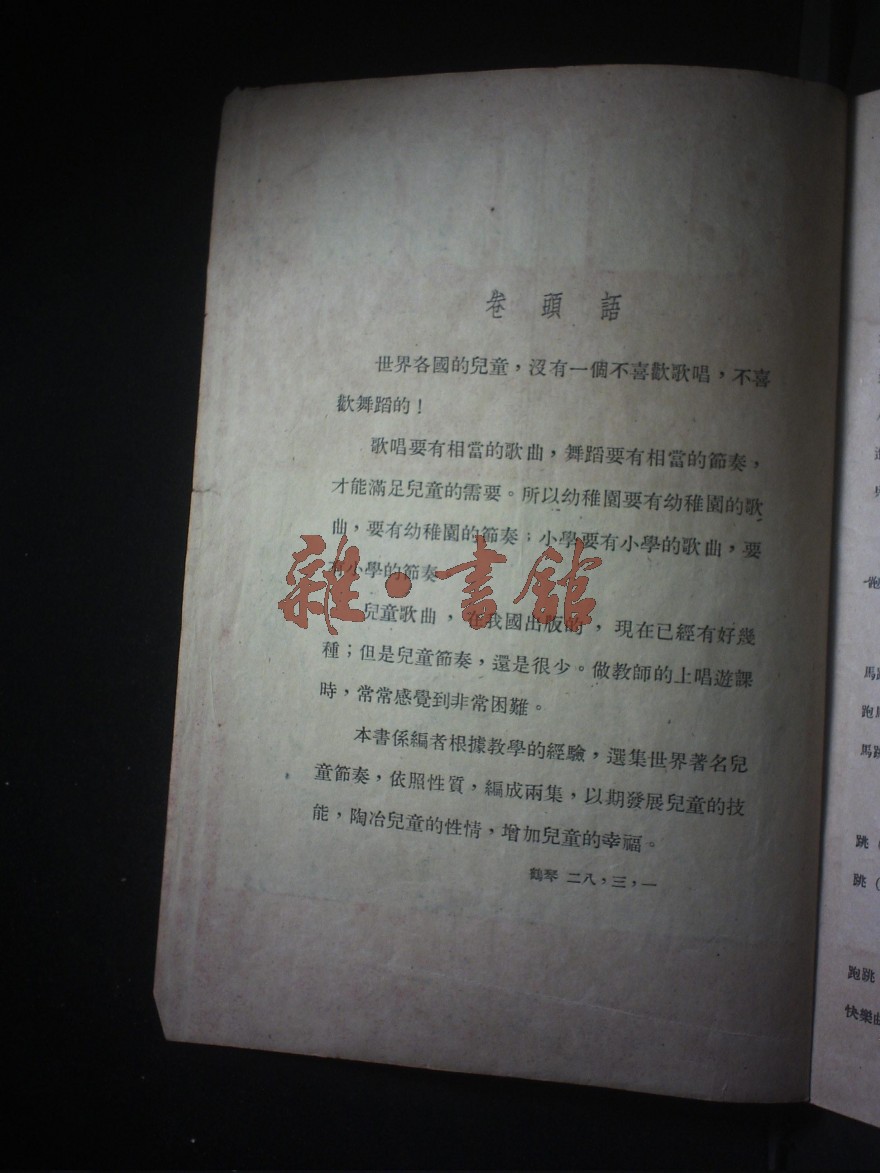 卷頭語
世界各國的兒童，沒有一個不喜歡歌唱，不喜
歡舞蹈的！
歌唱要有相當的歌曲，舞蹈要有相當的節奏，
才能滿足兒童的需要。所以幼稚園要有幼稚園的歌
曲，要有幼稚園的節奏；小學要有小學的歌曲，要
有小學的節奏
兒童歌曲，在我國出版的，現在已經有好幾
種；但是兒童節奏，還是很少。做教師的上唱遊課
時，常常感覺到非常困難。
本書係編者根據教學的經驗，選集世界著名兒
童節奏，依照性質，編成兩集，以期發展兒童的技
能，陶冶兒童的性情，增加兒童的幸福。
鶴琴 二八，三，一
雜·書館
跑
馬跳
跑馬
馬跳
跳（
跳（
跑跳
快樂曲